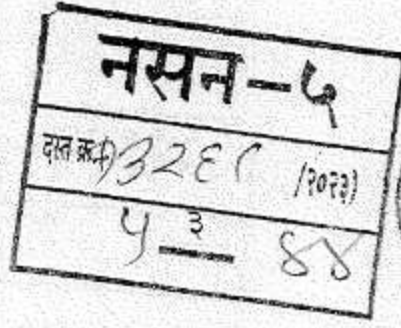 नसन-५
दस्त क्र.(१३२६९ /२०२३)
५ ३ ४४